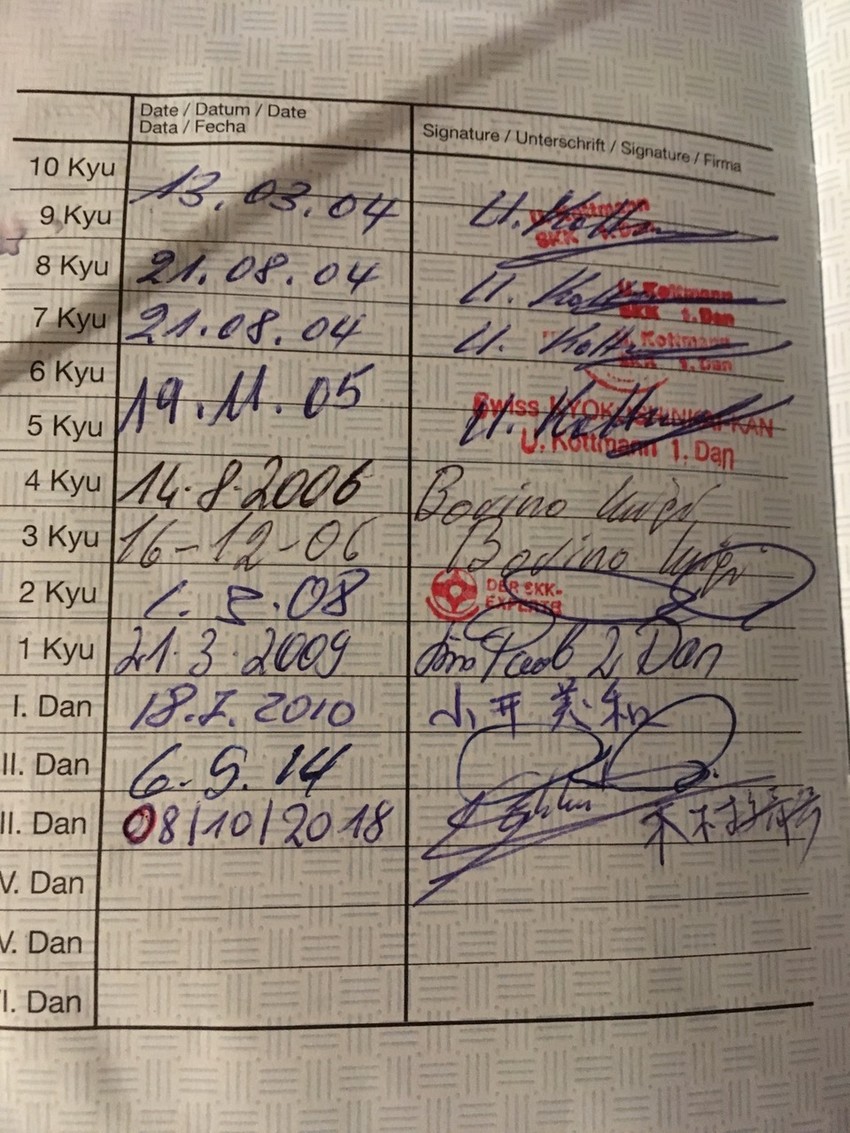 Date / Datum / Date
Data / Fecha
Signature / Unterschrift / Signature / Firma
10 Kyu
13.03.04
9 Kyu
U. Kottmann
SKK 1. Dan
8 Kyu 21.08.04 U.
U. Kottmann
SKK 1. Dan
7 Kyu 21.08.04 U.
Kottmann
SKK 1. Dan
6 Kyu
19.11.05
5 Kyu U.
Swiss KYOKUSHINKAI-KAN
U. Kottmann 1. Dan
4 Kyu 14.8.2006 Bovino
3 Kyu 16-12-06 Bovino
2 Kyu 08
DER SKK-
EXPERTE
1 Kyu 21.3.2009 2 Dan
I. Dan 2010 小井美和
II. Dan 14
II. Dan 08/10/2018 木村
V. Dan
V. Dan
I. Dan